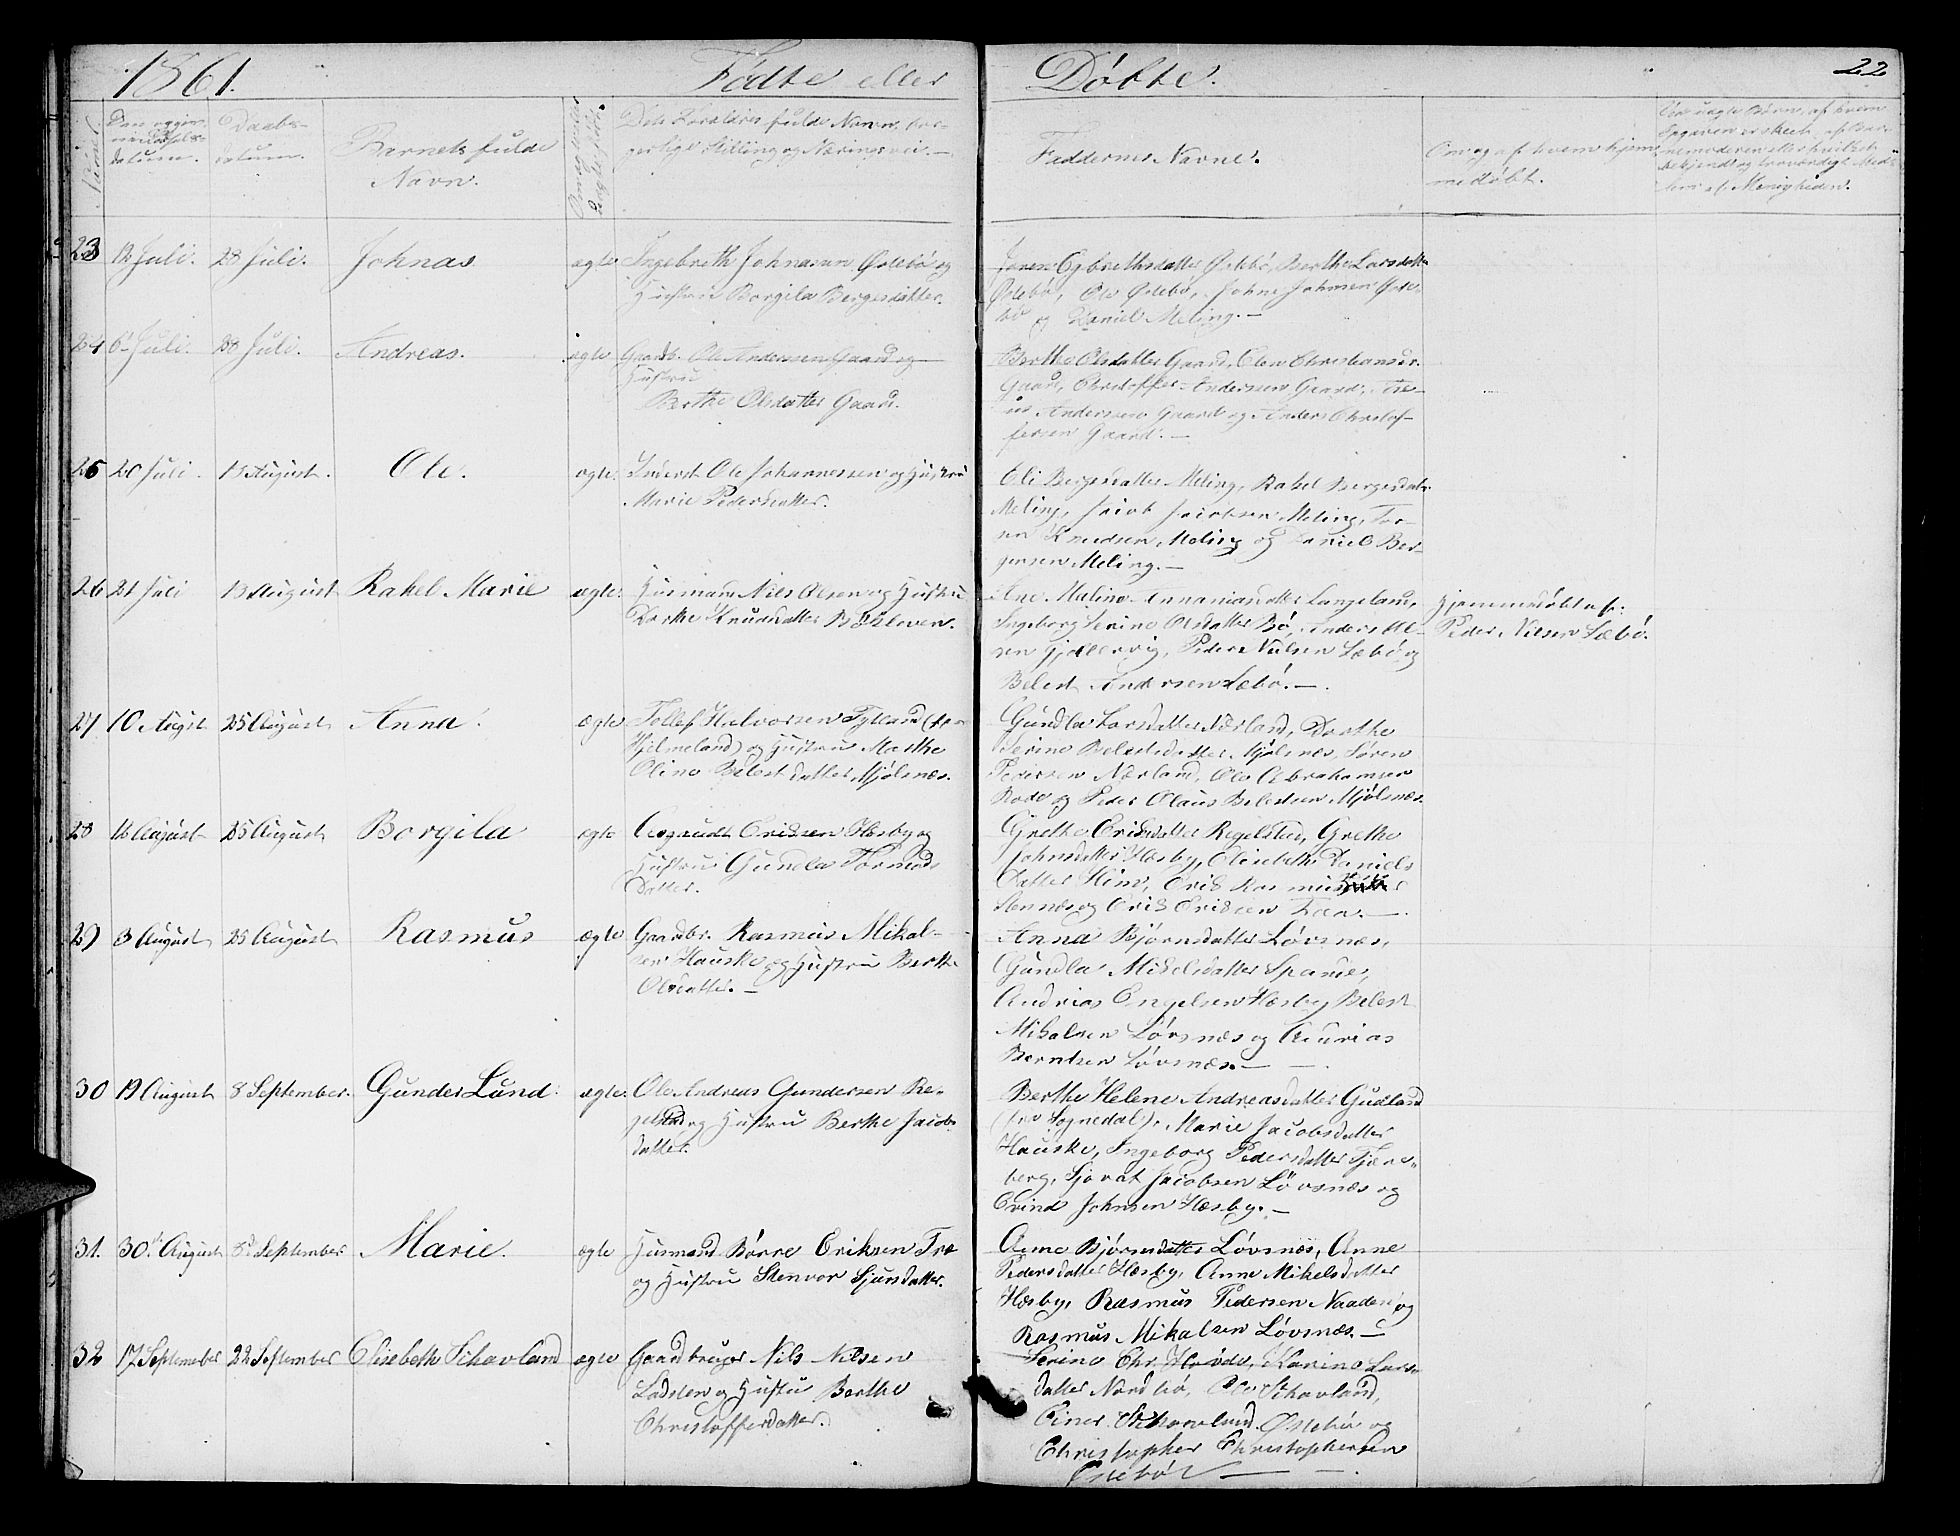 1861.
Fødte eller
Døbte.
22
Numer
Den opgivne Fødsels-
datum.
Daabs-
datum.
Barnets fulde
Navn.
Dets Forældres fulde Navn, bor-
gerlige Stilling og Næringsvei.
Faddernes Navne.
Om og af hvem hjem-
medøbt.
23
12 Juli.
28 Juli.
Johnas
ægte
Ingebreth Johnasen Østebø og
Hustru Borgila Bergesdatter.
Egbrethsdatter Østebø, Berthe Larsdatter
Østebø, Ole Østebø, Johne Johnsen Øste-
bø og Daniel Meling.
24
6 Juli.
28 Juli.
Andreas.
ægte
Gaardb. Ole Andersen Gaard og
Hustru
Berthe Olsdatter Gaard.
Berthe Olsdatter Gaard, Elen Christiansdr.
Gaard, Christoffer Andersen Gaard,
Andersen Gaard og Anders Christof-
fersen Gaard.
25
20 Juli.
18 August.
Ole.
ægte.
Inderst Ole Johannessen og Hustru
Marie Pedersdatter.
Eli Bergesdatter Meling, Rakel Bergesdatr.
Meling, Jacob Jacobsen Meling, Tor-
Knudsen Meling og Daniel Ber-
gersen Meling.
26
21 Juli
18 August
Rakel Marie
ægte.
Husmand Niels Olsen og Hustru
Dorthe Knudsdatter
Ane Maline Annaniasdatter Langeland,
Ingeborg Serine Olsdatter Bø, Anders Ol-
sen Gjellervig, Peder Nielsen Sæbø og
Belest Andersen Sæbø.
Hjemmedøbt af:
Peder Nielsen Sæbø.
27
10 August
25 August
Anna.
ægte
Tollef Halvorsen Tytland (fra
Hjelmeland) og Hustru Marthe
Oline Belestdatter Mjølsnæs.
Gundla Larsdatter Nærland, Dorthe
Serine Belestsdatter Mjølsnæs, Søren
Pedersen Nærland, Ole Abrahamsen
Rode og Peder Olaus Belestsen Mjølsnæs.
28
12 August
25 August
Borgila
ægte
Eriksen Hæsby og
Hustru Gundla Tormods
Datter.
Grethe Eriksdatter Regelstad, Grethe
Johnsdatter Hæsby, Elisebeth Daniels
Datter Hiim, Erik Rasmus
Stennæs og Erik Eriksen
29
3 August
25 August
Rasmus
ægte
Gaardbr. Rasmus Mikal-
sen Hauske og Hustru Berthe
Olsdatter.
Anna Bjørnsdatter Løvsnæs,
Gundla Mikelsdatter Spanne,
Andrias Engelsen Hæsby, Belest
Mikalsen Løvsnæs og
Berntsen Løvsnæs.
30
19 August
8 September.
Gunder Lund.
ægte.
Ole Andreas Gundersen Re-
gelstad og Hustru Berthe Jacobs
datter.
Berthe Helene Andreasdatter Gudland
(fra Sognedal), Marie Jacobsdatter
Hauske, Ingeborg Pedersdatter Tjæres-
berg, Sjovat Jacobsen Løvsnæs og
Evind Johnsen Hæsby.
31.
30. August
8 September
Marie.
ægte
Husmand Børre Eriksen Træ
og Hustru Stenvor Sjursdatter.
Anne Bjørnsdatter Løvsnæs, Anne
Pedersdatter Hæsby, Anne Mikelsdatter
Hæsby, Rasmus Pedersen Naaden og
Rasmus Mikalsen Løvsnæs.
32
17 September
22 September
Elisebeth Schavland
ægte
Gaardbruger Nils Nilsen
Ladsten og Hustru Berthe
Christofferdatter.
Serine Chr. Karine Lars-
datter Nordbø, Ole Schavland,
Einer Schavland Østebø og
Christopher Christophersen
Østebø